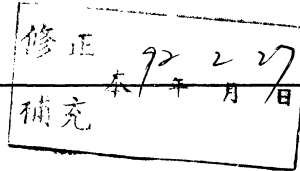 修正
本92年2月27日
補充